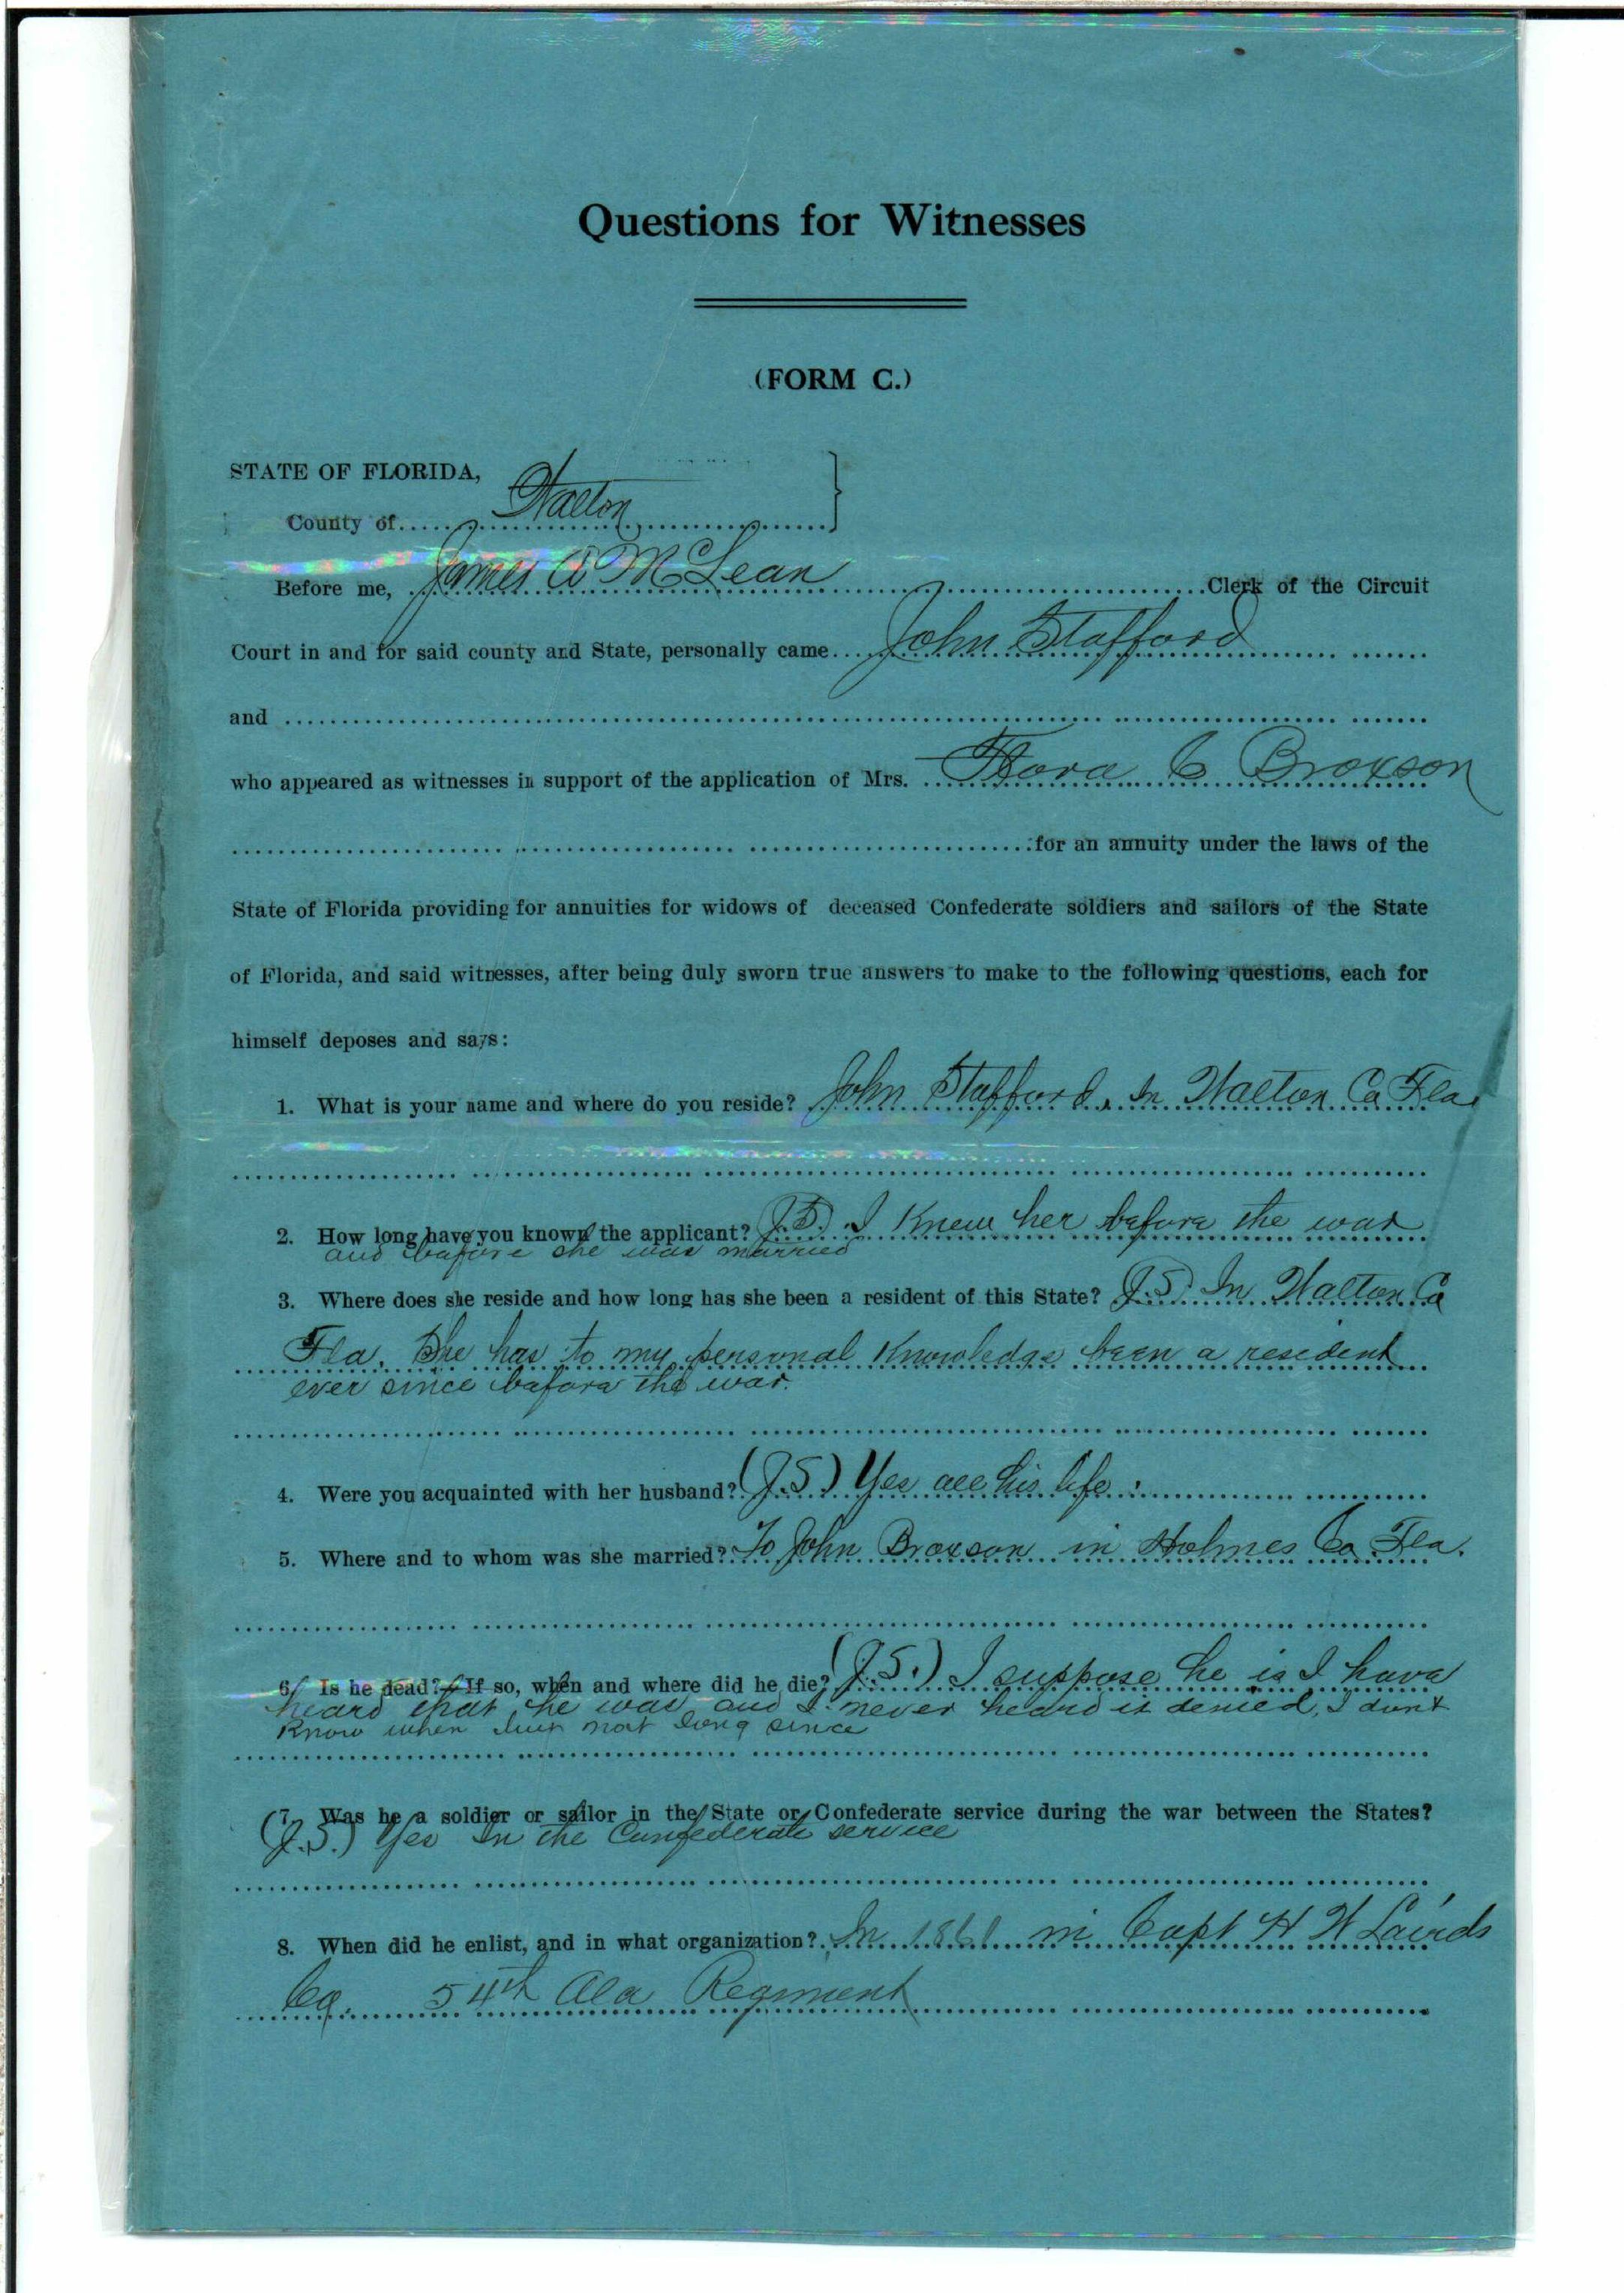 Questions for Witnesses
(FORM C.)
STATE OF FLORIDA,
County of Walton
Before me, James A McLean Clerk of the Circuit
Court in and for said county and State, personally came John Stafford
and
who appeared as witnesses in support of the application of Mrs. Flora C Broxson
for an annuity under the laws of the
State of Florida providing for annuities for widows of deceased Confederate soldiers and sailors of the State
of Florida, and said witnesses, after being duly sworn true answers to make to the following questions, each for
himself deposes and says:
1. What is your name and where do you reside? John Stafford, In Walton Co Fla.
2. How long have you known the applicant? (J.S.) I Knew her before the war
and before she was married
3. Where does she reside and how long has she been a resident of this State? (J.S) In Walton Co
Fla. She has to my personal Knowledge been a resident
ever since before the war.
4. Were you acquainted with her husband? (J.S.) Yes all his life.
5. Where and to whom was she married? To John Broxson in Holmes Co Fla.
6. Is he dead? If so, when and where did he die? (J.S.) I suppose he is I have
heard that he was and I never heard it denied, I dont
Know when but not long since
7. Was he a soldier or sailor in the State or Confederate service during the war between the States?
(J.S.) Yes In the Confederate service
8. When did he enlist, and in what organization? In 1861 in Capt H W Lairds
Co. 54th Ala Regiment